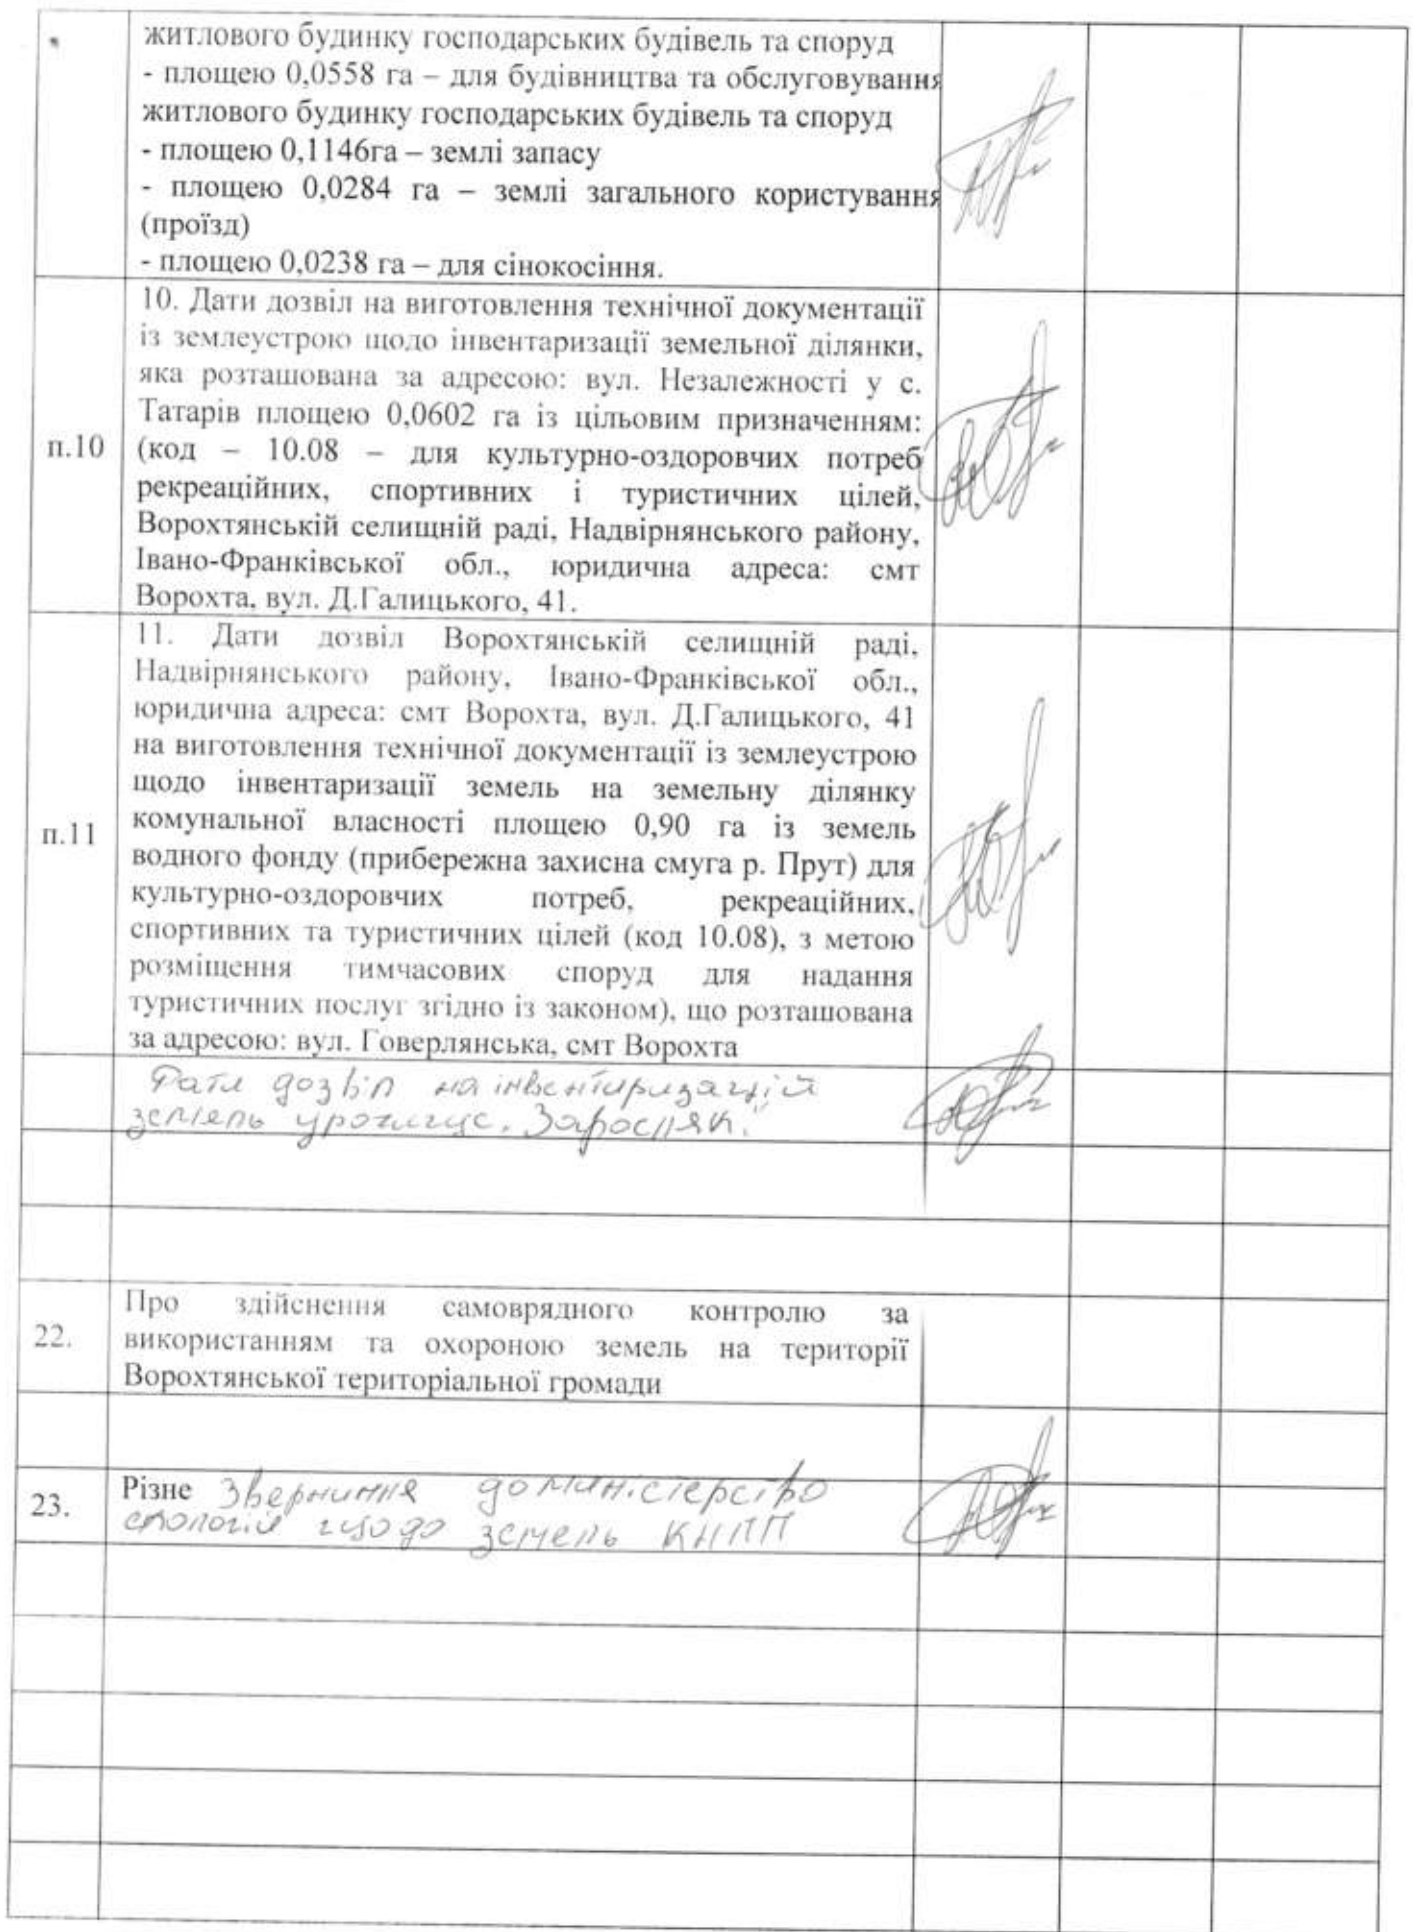 житлового будинку господарських будівель та споруд
- площею 0,0558 га – для будівництва та обслуговування
житлового будинку господарських будівель та споруд
- площею 0,1146га – землі запасу
- площею 0,0284 га – землі загального користування
(проїзд)
- площею 0,0238 га – для сінокосіння.
п.10
10. Дати дозвіл на виготовлення технічної документації
із землеустрою щодо інвентаризації земельної ділянки,
яка розташована за адресою: вул. Незалежності у с.
Татарів площею 0,0602 га із цільовим призначенням:
(код – 10.08 – для культурно-оздоровчих потреб
рекреаційних, спортивних і туристичних цілей,
Ворохтянській селищній раді, Надвірнянського району,
Івано-Франківської обл., юридична адреса: смт
Ворохта, вул. Д.Галицького, 41.
п.11
11. Дати дозвіл Ворохтянській селищній раді,
Надвірнянського району, Івано-Франківської обл.,
юридична адреса: смт Ворохта, вул. Д.Галицького, 41
на виготовлення технічної документації із землеустрою
щодо інвентаризації земель на земельну ділянку
комунальної власності площею 0,90 га із земель
водного фонду (прибережна захисна смуга р. Прут) для
культурно-оздоровчих потреб, рекреаційних,
спортивних та туристичних цілей (код 10.08), з метою
розміщення тимчасових споруд для надання
туристичних послуг згідно із законом), що розташована
за адресою: вул. Говерлянська, смт Ворохта
Дати дозвіл на інвентиризацій
земель урочище. Заросляк"
22.
Про здійснення самоврядного контролю за
використанням та охороною земель на території
Ворохтянської територіальної громади
23.
Різне Зверниння до Міністерство
екологій щодо земель КНПП